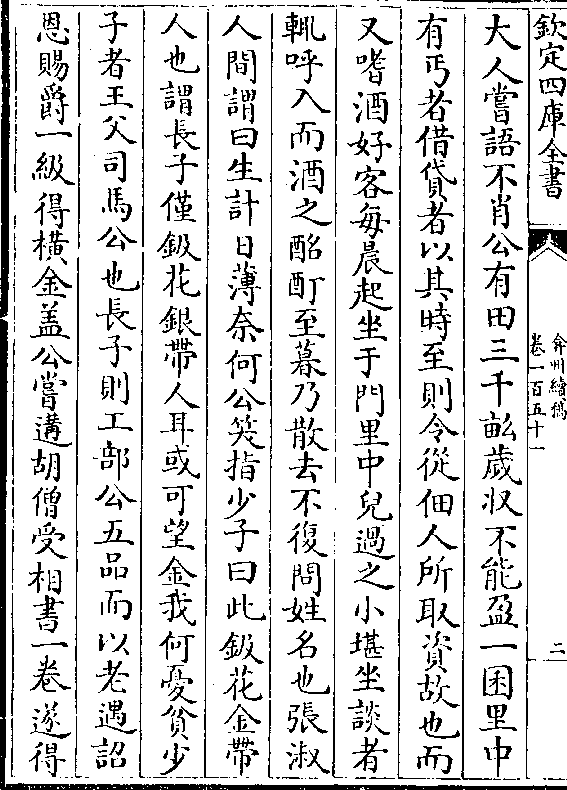 欽定四庫全書
弇州續稿
卷一百五十一
二
大人嘗語不肖公有田三千畝歲収不能盈一囷里中
有丐者借貸者以其時至則令從佃人所取資故也而
又嗜酒好客每晨起坐于門里中兒過之小堪坐談者
輒呼入而酒之酩酊至暮乃散去不復問姓名也張淑
人間謂曰生計日薄奈何公笑指少子曰此鈒花金帶
人也謂長子僅鈒花銀帶人耳或可望金我何憂貧少
子者王父司馬公也長子則工部公五品而以老遇詔
恩賜爵一級得橫金盖公嘗遘胡僧受相書一卷遂得